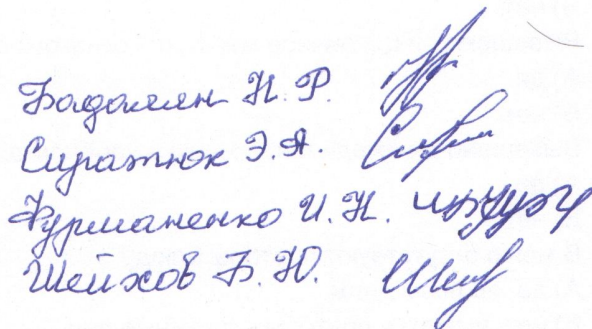 Бадалян Н. Р.
Сиратюк Э. А.
Фурманенко И. Н.
Шейхов Б. Ю.